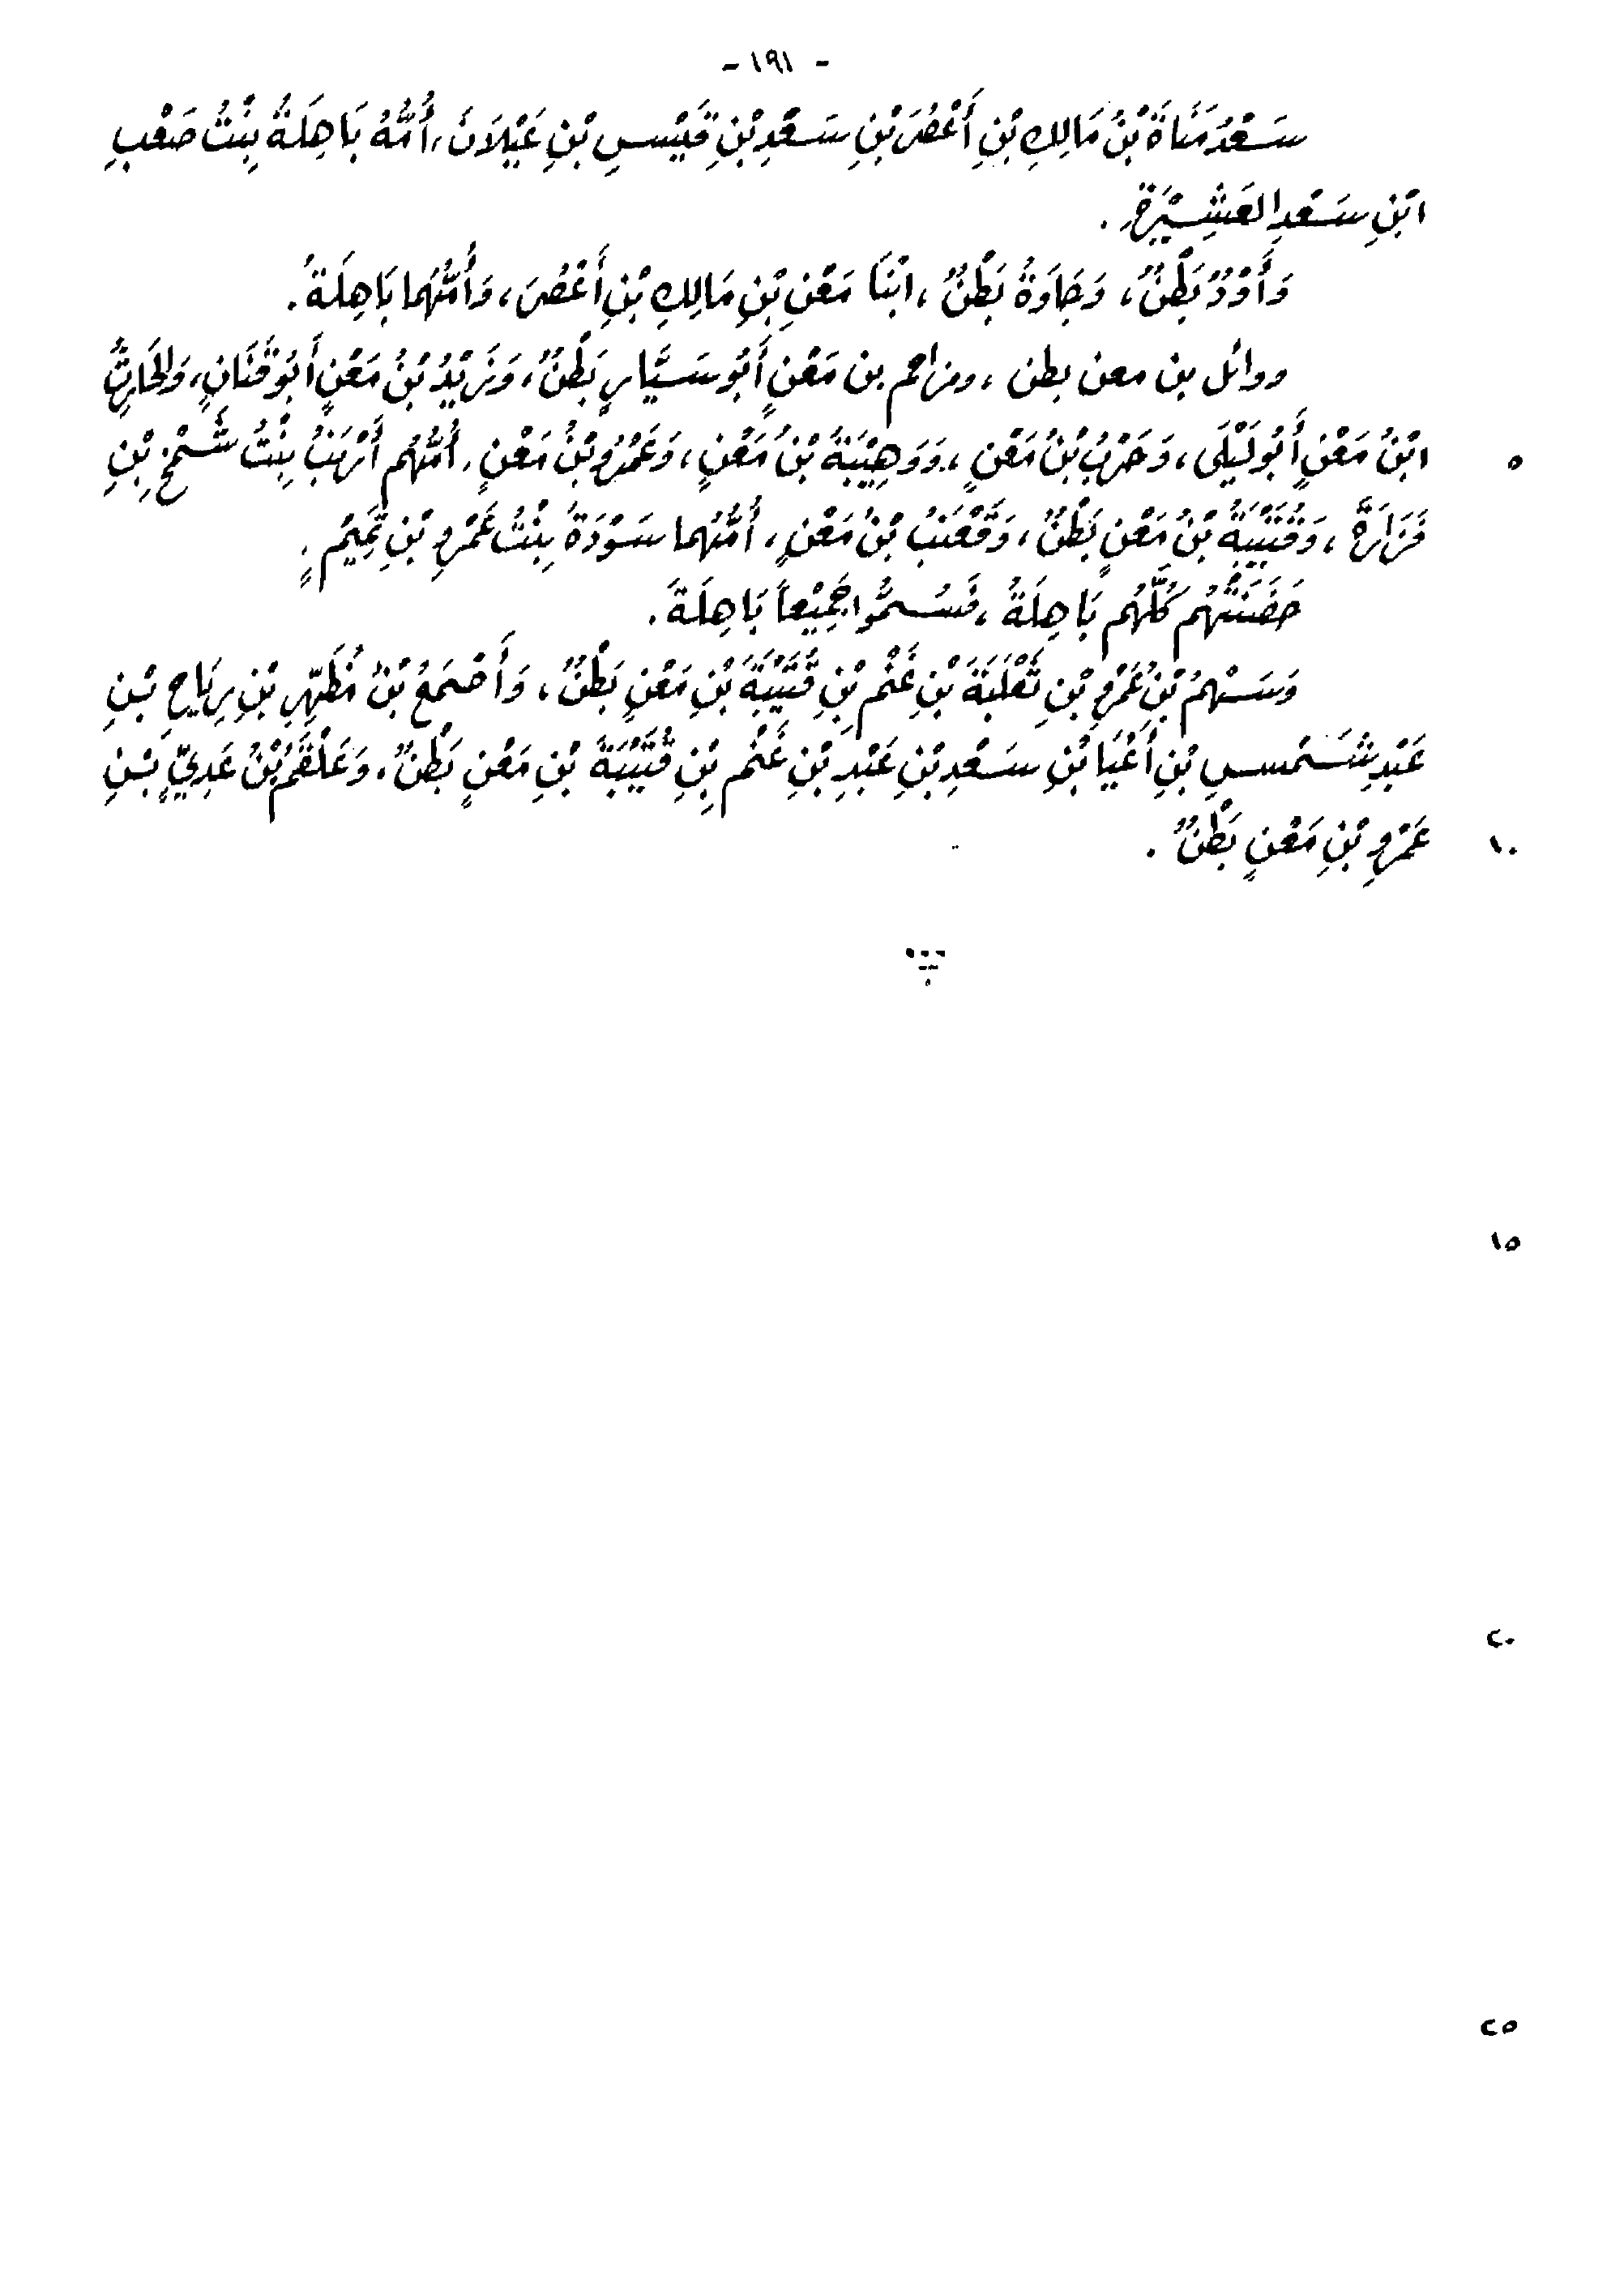 - ١٩١ -
سَعْدُ مَنَاةَ بْنُ مَالِكِ بْنِ أَعْصُرَ بْنِ سَعْدِ بْنِ قَيْسِ بْنِ عَيْلَانَ، أُمُّهُ بَاهِلَةُ بِنْتُ صَعْبِ
ابْنِ سَعْدِ العَشِيْرَةِ .
وَأَوْدُ بَطْنٌ، وَجِئَاوَةُ بَطْنٌ ، ابْنَا مَعْنِ بْنِ مَالِكِ بْنِ أَعْصُرَ، وَأُمُّهُمَا بَاهِلَةُ .
ووائل بن معن بطن ، ومزاحم بن مَعْنٍ أَبُو سَيَّارٍ بَطْنٌ، وَزَيْدُ بْنُ مَعْنٍ أَبُو قَنَانٍ، وَالحَارِثُ
٥ ابْنُ مَعْنٍ أَبُو لَيْلَى، وَحَرْبُ بْنُ مَعْنٍ ، وَوَهِيْبَةُ بْنُ مَعْنٍ، وَعَمْرُو بْنُ مَعْنٍ، أُمُّهُم أَرْنَبُ بِنْتُ شَمْخِ بْنِ
فَزَارَةَ ، وَقُتَيْبَةُ بْنُ مَعْنٍ بَطْنٌ، وَقَعْنَبُ بْنُ مَعْنٍ، أُمُّهُمَا سَوْدَةُ بِنْتُ عَمْرِو بْنِ تَمِيْمٍ .
حَضَنَتْهُم كُلَّهُم بَاهِلَةُ ، فَسُمُّوا جَمِيْعاً بَاهِلَةَ .
وَسَهْمُ بْنُ عَمْرِو بْنِ ثَعْلَبَةَ بْنِ غَنْمِ بْنِ قُتَيْبَةَ بْنِ مَعْنٍ بَطْنٌ، وَأَصْمَعُ بْنُ مُظَهِّرِ بْنِ رِيَاحِ بْنِ
عَبْدِ شَمْسِ بْنِ أَعْيَا بْنِ سَعْدِ بْنِ عَبْدِ بْنِ غَنْمِ بْنِ قُتَيْبَةَ بْنِ مَعْنٍ بَطْنٌ، وَعَلْقَمُ بْنُ عَدِيِّ بْنِ
١٠ عَمْرِو بْنِ مَعْنٍ بَطْنٌ .
١٥
٢٠
٢٥